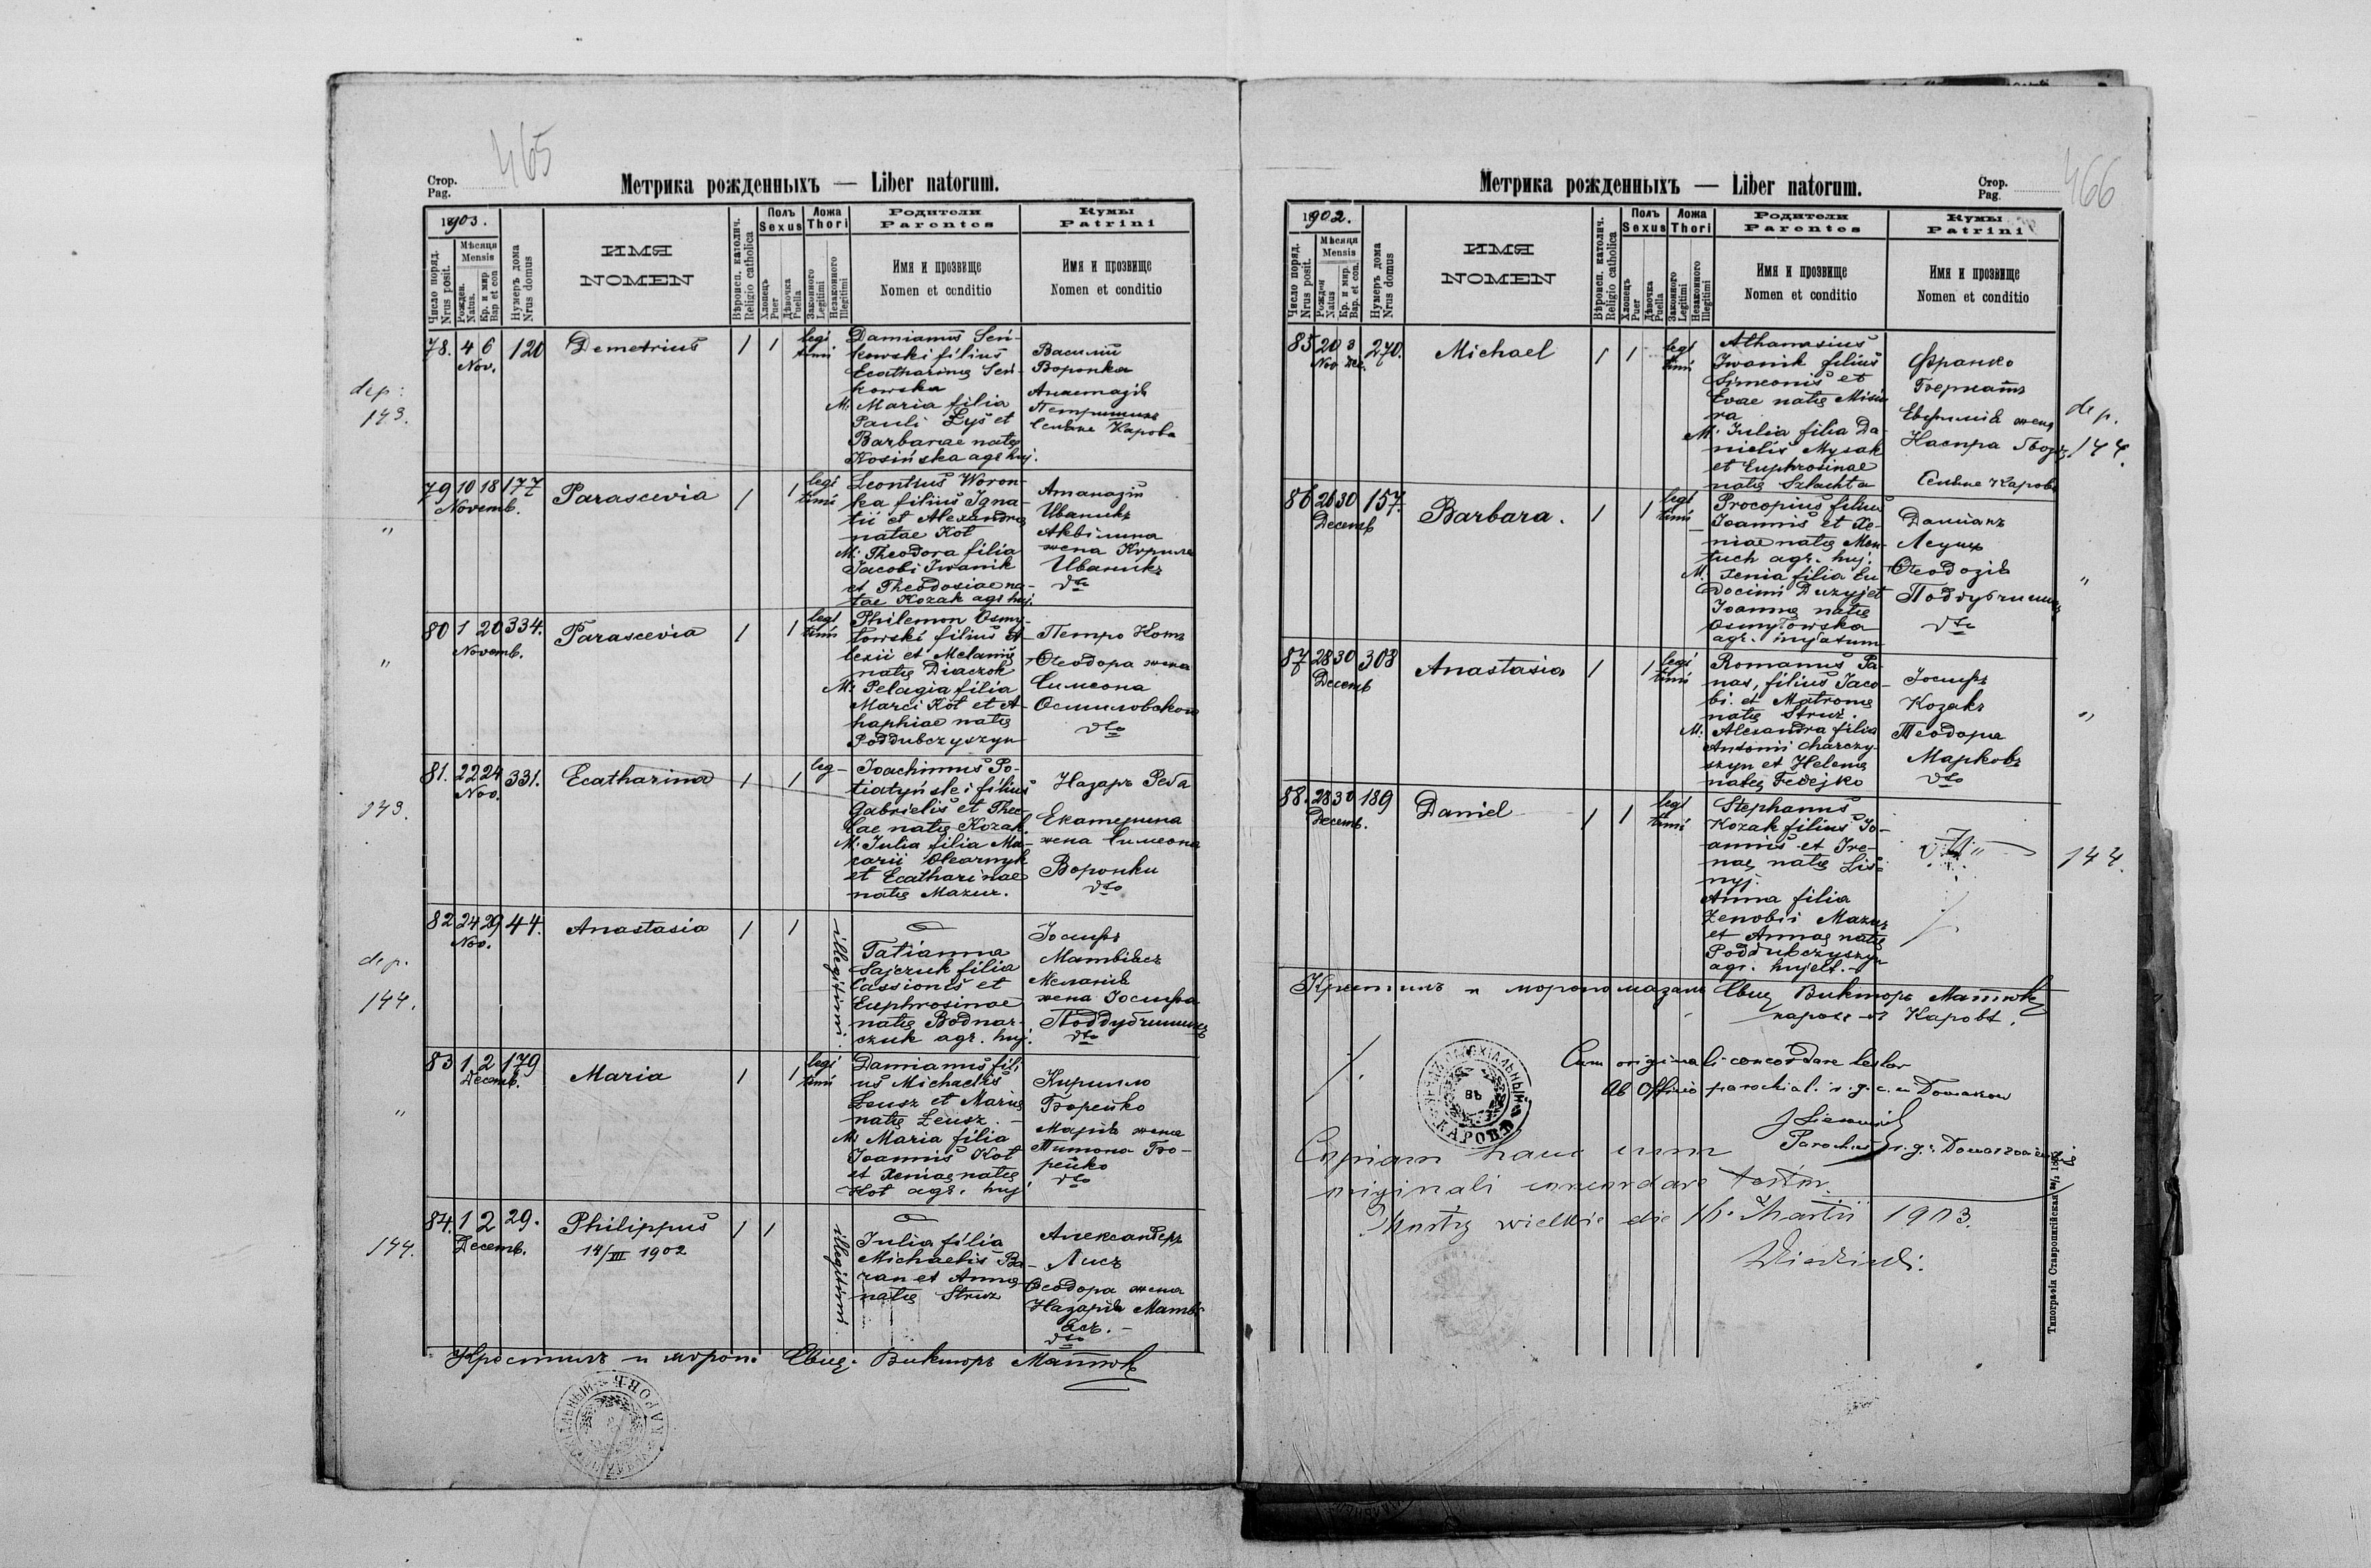 465
Стор.
Pag.
Метрика рожденныхъ — Liber natorum.
1903.
Число поряд.
Nrus posit.
Мѣсяця
Mensis
Рожден.
Natus.
Кр. и мир
Bap et con
Нумеръ дома
Nrus domus
ИМЯ
NOMEN
Вѣроисп. католич.
Religio catholica
Полъ
Sexus
Хлопецъ
Puer
Дѣвочка
Puella
Ложа
Thori
Законного
Legitimi
Незаконного
Illegitimi
Родители
Parentes
Имя и прозвище
Nomen et conditio
Кумы
Patrini
Имя и прозвище
Nomen et conditio
dep:
143.
78. 4 6 120 Demetrius 1 1 legi
Nov. timi
Damianus Seń-
kowski filius
Ecatharinę Seń-
kowska
M: Maria filia
Pauli Łyś et
Barbarae natę
Kosińska agr huj.
Василій
Воронка
Анастазія
Петришинъ
Селяне Карова
"
79 10 18 177 Parascevia 1 1 legi
Novemb. timi
Leontius Woron-
ka filius Igna-
tii et Alexandrę
natae Kot
M: Theodora filia
Jacobi Iwanik
et Theodosiae na-
tae Kozak agr huj.
Атаназій
Иваникъ
Аквілина
жена Кирила
Иваникъ
dto
"
80 1 20 334. Parascevia 1 1 legi
Novemb. timi
Philemon Osmy-
łowski filius A-
lexii et Melanię
natę Diaczok
M: Pelagia filia
Marci Kot et A-
haphiae natę
Poddubczyszyn
Петро Котъ
Ѳеодора жена
Симеона
Осмиловского
dto
143.
81. 22 24 331. Ecatharina 1 1 leg-
Nov.
Joachimus Po-
tiatyński filius
Gabrielis et Thec-
lae natę Kozak.
M: Julia filia Ma-
carii Olearnyk
et Ecatharinae
natę Mazur.
Назаръ Реба
Екатерина
жена Симеона
Воронки
dto
dep.
144.
82 24 29 44. Anastasia 1 1 illegitimi
Nov.
Tatianna
Sajczuk filia
Cassionis et
Euphrosinae
natę Bodnar-
czuk agr. huj.
Іосифъ
Матвіясъ
Меланія
жена Іосифа
Поддубчишинъ
dto
"
83 1 2 179 Maria 1 1 legi
Decemb. timi
Damianus fili-
us Michaelis
Leusz et Marię
natę Leusz.
M: Maria filia
Joannis Kot
et Xeniae natę
Kot agr. huj
Кирилло
Борейко
Марія жена
Тимона Бо-
рейко
dto
144.
84. 1 2 29. Philippus 1 1 illegitimi
Decemb. 14/XII 1902
Julia filia
Michaelis Ba-
ran et Annę
natę Struz
Александеръ
Лисъ
Ѳеодора жена
Назарія Матві-
ясъ.
dto
Крестилъ и мѵроп. Свящ. Викторъ Матюкъ
466
Стор.
Pag.
Метрика рожденныхъ — Liber natorum.
1902.
Число поряд.
Nrus posit.
Мѣсяця
Mensis
Рожден
Natus
Кр. и мир.
Bap. et con.
Нумеръ дома
Nrus domus
ИМЯ
NOMEN
Вѣроисп. католич.
Religio catholica
Полъ
Sexus
Хлопецъ
Puer
Дѣвочка
Puella
Ложа
Thori
Законного
Legitimi
Незаконного
Illegitimi
Родители
Parentes
Имя и прозвище
Nomen et conditio
Кумы
Patrini
Имя и прозвище
Nomen et conditio
85 20 3 270. Michael 1 1 legi
Nov Dec. timi
Athanasius
Iwanik filius
Simeonis et
Evae natę Misiu
ra
M: Julia filia Da-
nielis Mysak
et Euphrosinae
natę Szlachta
Франко
Євфимія жена
Селяне Карова
dep.
144.
86 26 30 157. Barbara. 1 1 legi
Decemb timi
Procopius filius
Joannis et Xe-
niae natę Mon-
tuch agr. huj.
M. Xenia filia Eu
docimi Duzyj et
Joannę natę
Osmyłowska
agr. hujatum
Даміянъ
Леущъ
Ѳеодозія
Поддубчишинъ
dto
"
87 28 30 308 Anastasia 1 1 legi
Decemb timi
Romanus Pa-
nas, filius Jaco-
bi et Matronę
natę Struż.
M: Alexandra filia
Antonii Charczy-
szyn et Helenę
natę Fedejko
Іосифъ
Козакъ
Теодора
Марковъ
dto
"
88. 28 30 189 Daniel 1 1 legi
Decemb. timi
Stephanus
Kozak filius Jo-
annis et Ire-
nae natę Lis-
nyj.
Anna filia
Zenobii Mazur
et Annae natę
Poddubczyszyn
agr. hujelt.
144.
Крестилъ и мѵропомазалъ Свящ Викторъ Матюкъ
парохъ въ Каровѣ.
Cum originali concordare testor
Ab Officio parochiali r. g. c. in Domaszow
Parochus r. g. Domaszoviensis
Copiam hanc cum
originali concordare testor
Mosty wielkie die 16. Martii 1903.
КАРОВѢ
Типографія Ставропигійская